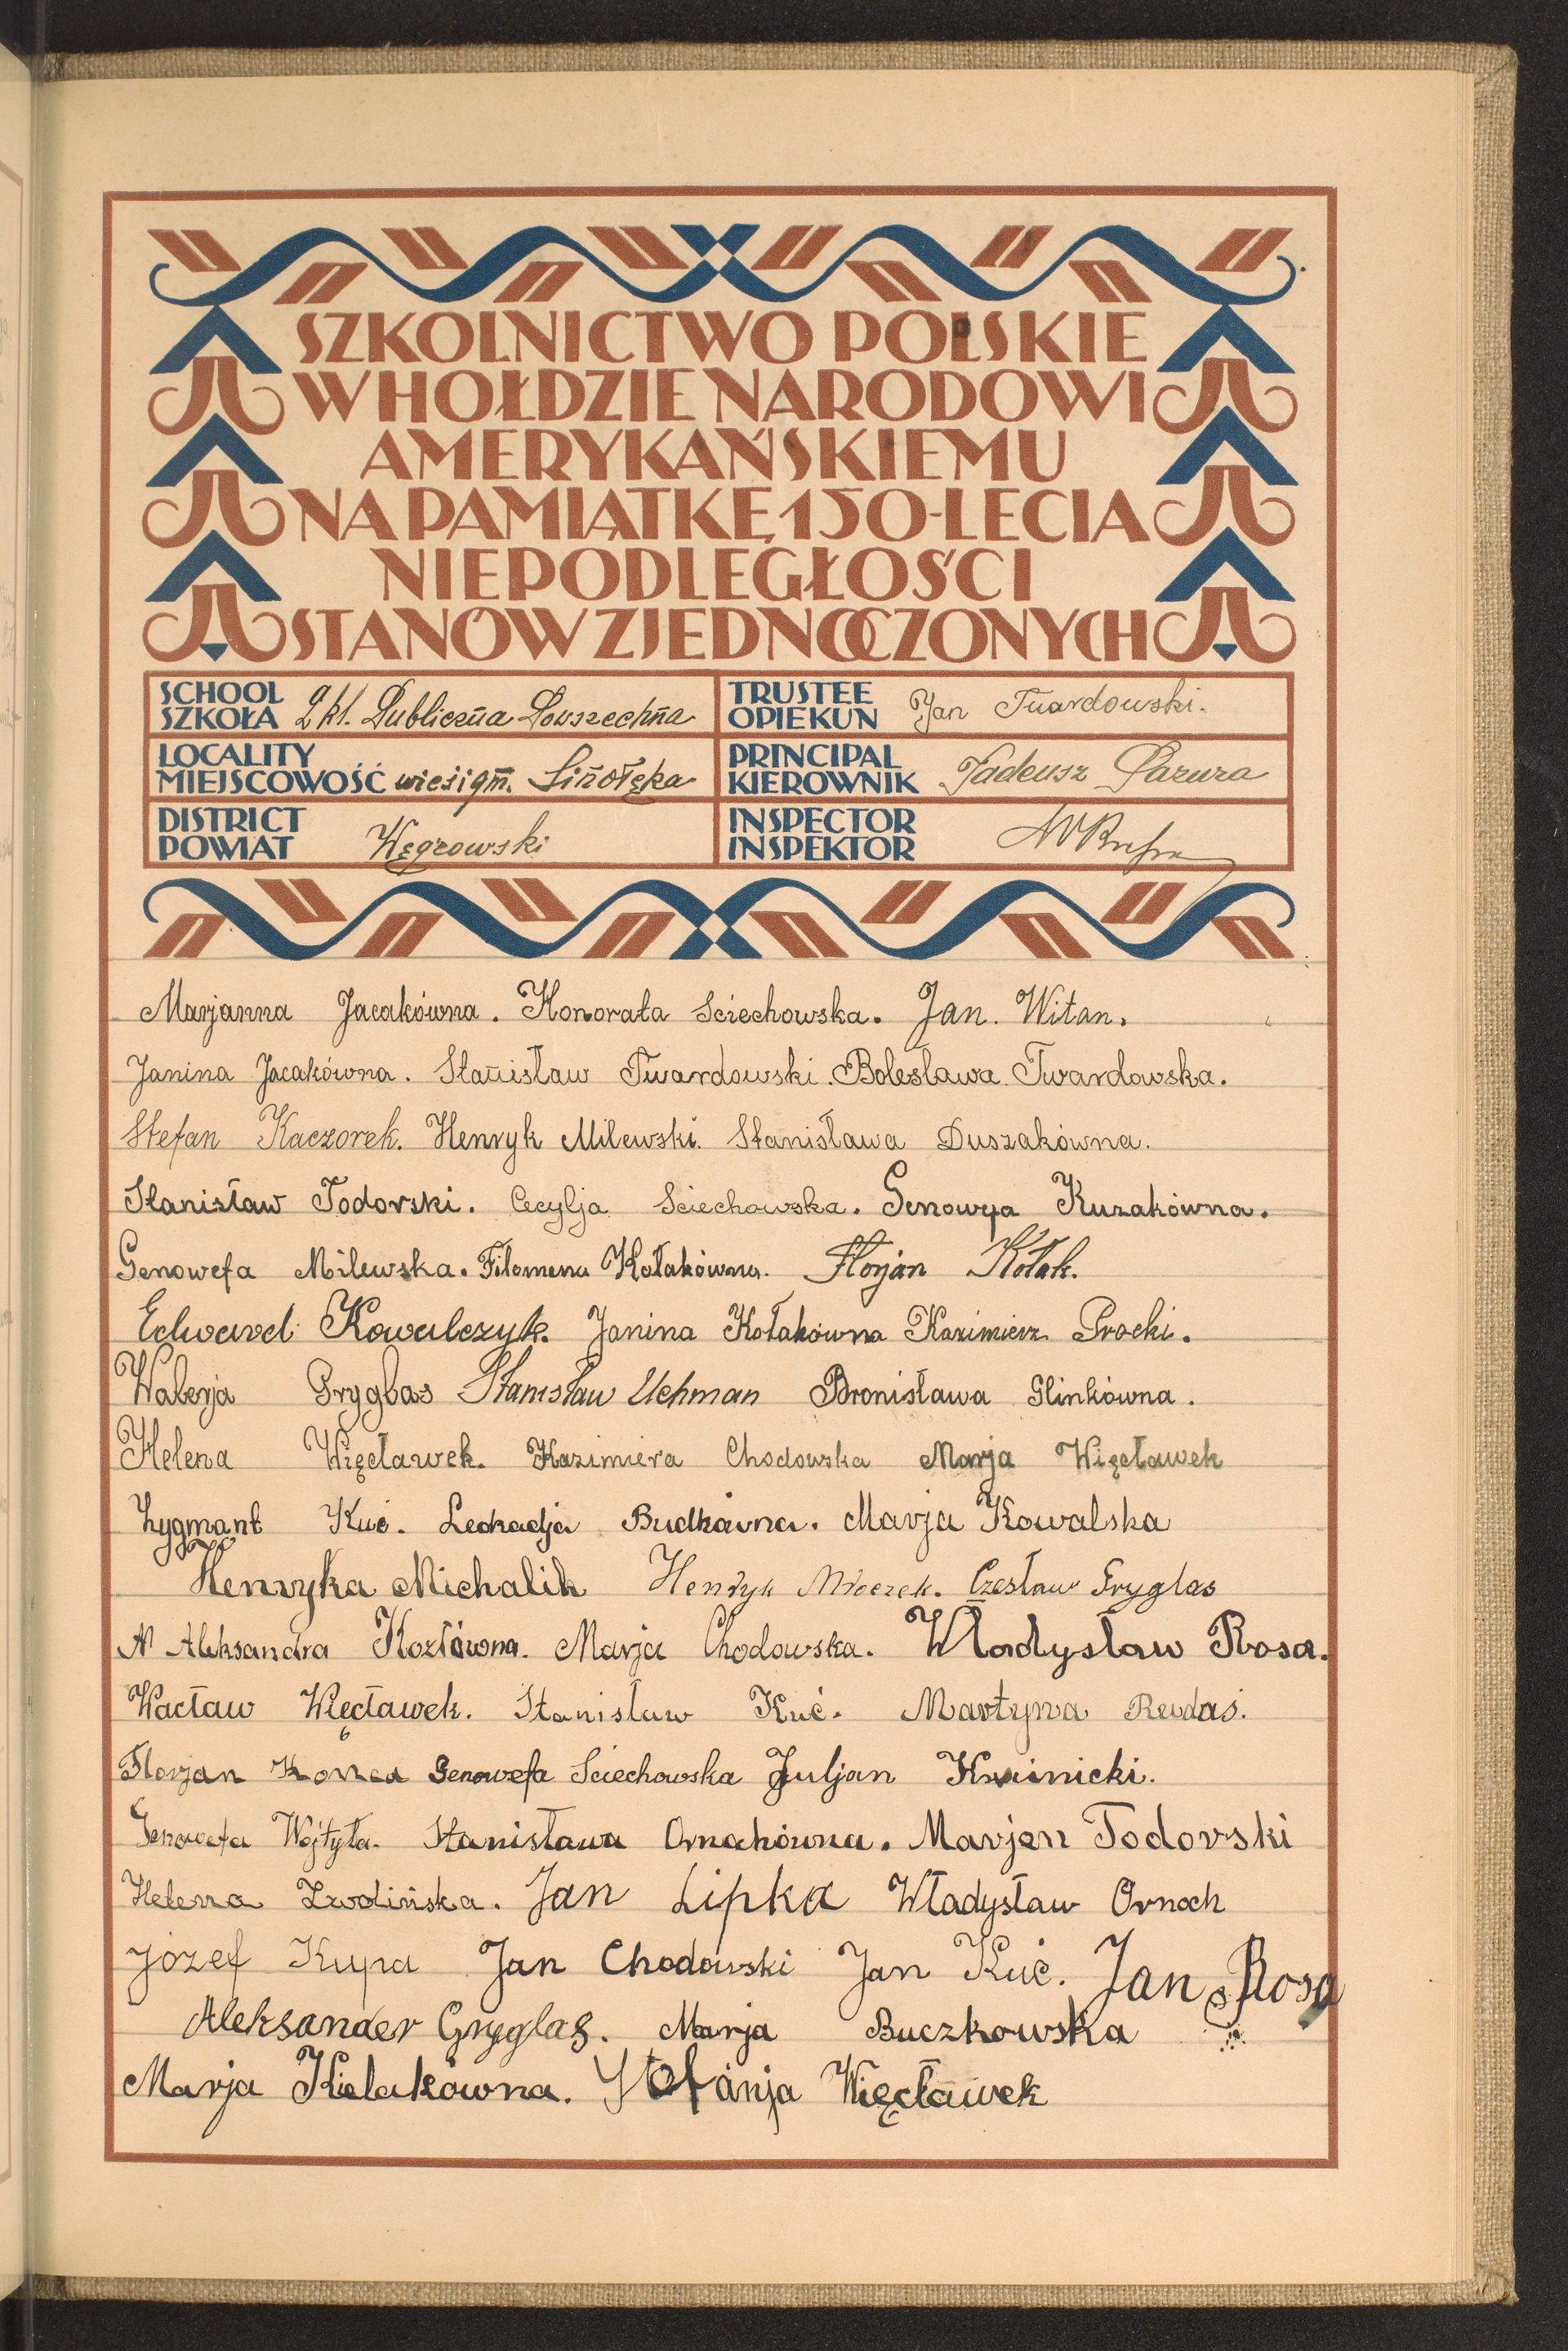 SZKOLNICTWO POLSKIE
W HOŁDZIE NARODOWI
AMERYKAŃSKIEMU
NA PAMIĄTKĘ 150-LECIA
NIEPODLEGŁOŚCI
STANÓW ZJEDNOCZONYCH
SCHOOL SZKOŁA 2 kl. Publiczna Powszechna
TRUSTEE OPIEKUN Jan Twardowski.
LOCALITY MIEJSCOWOŚĆ wieś i gm. Sinołęka
PRINCIPAL KIEROWNIK Tadeusz Pazura
DISTRICT POWIAT Węgrowski
INSPECTOR INSPEKTOR
Marjanna Jacakówna. Honorata Sciechowska. Jan. Witan.
Janina Jacakówna. Stanisław Twardowski. Bolesława Twardowska.
Stefan Kaczorek. Henryk Milewski. Stanisława Duszakówna.
Stanisław Todorski. Cecylja Sciechowska. Kuzakówna.
Genowefa Milewska. Filomena Kołakówna. Florjan Kołak.
Edward Kowalczyk. Janina Kołakówna Kazimierz Procki.
Walerja Gryglas Stanisław Uchman Bronisława Glinkówna.
Helena Więcławek. Kazimiera Chodowska Marja Więcławek
Zygmant Kuć. Leokadja Budkówna. Marja Kowalska
Henryka Michalik Henryk Mroczek. Czesław Gryglas
Aleksandra Kozłówna. Marja Chodowska. Władysław Rosa.
Wacław Więcławek. Stanisław Kuć. Martyna
Florjan Genowefa Sciechowska Juljan
Genowefa Wojtyła. Stanisława Ornochówna. Marjan Todorski
Helena Zwolińska. Jan Lipka Władysław Ornoch
Józef Kupa Jan Chodowski Jan Kuć. Jan Rosa
Aleksander Gryglas. Marja Buczkowska
Marja Kielakówna. Stefanja Więcławek